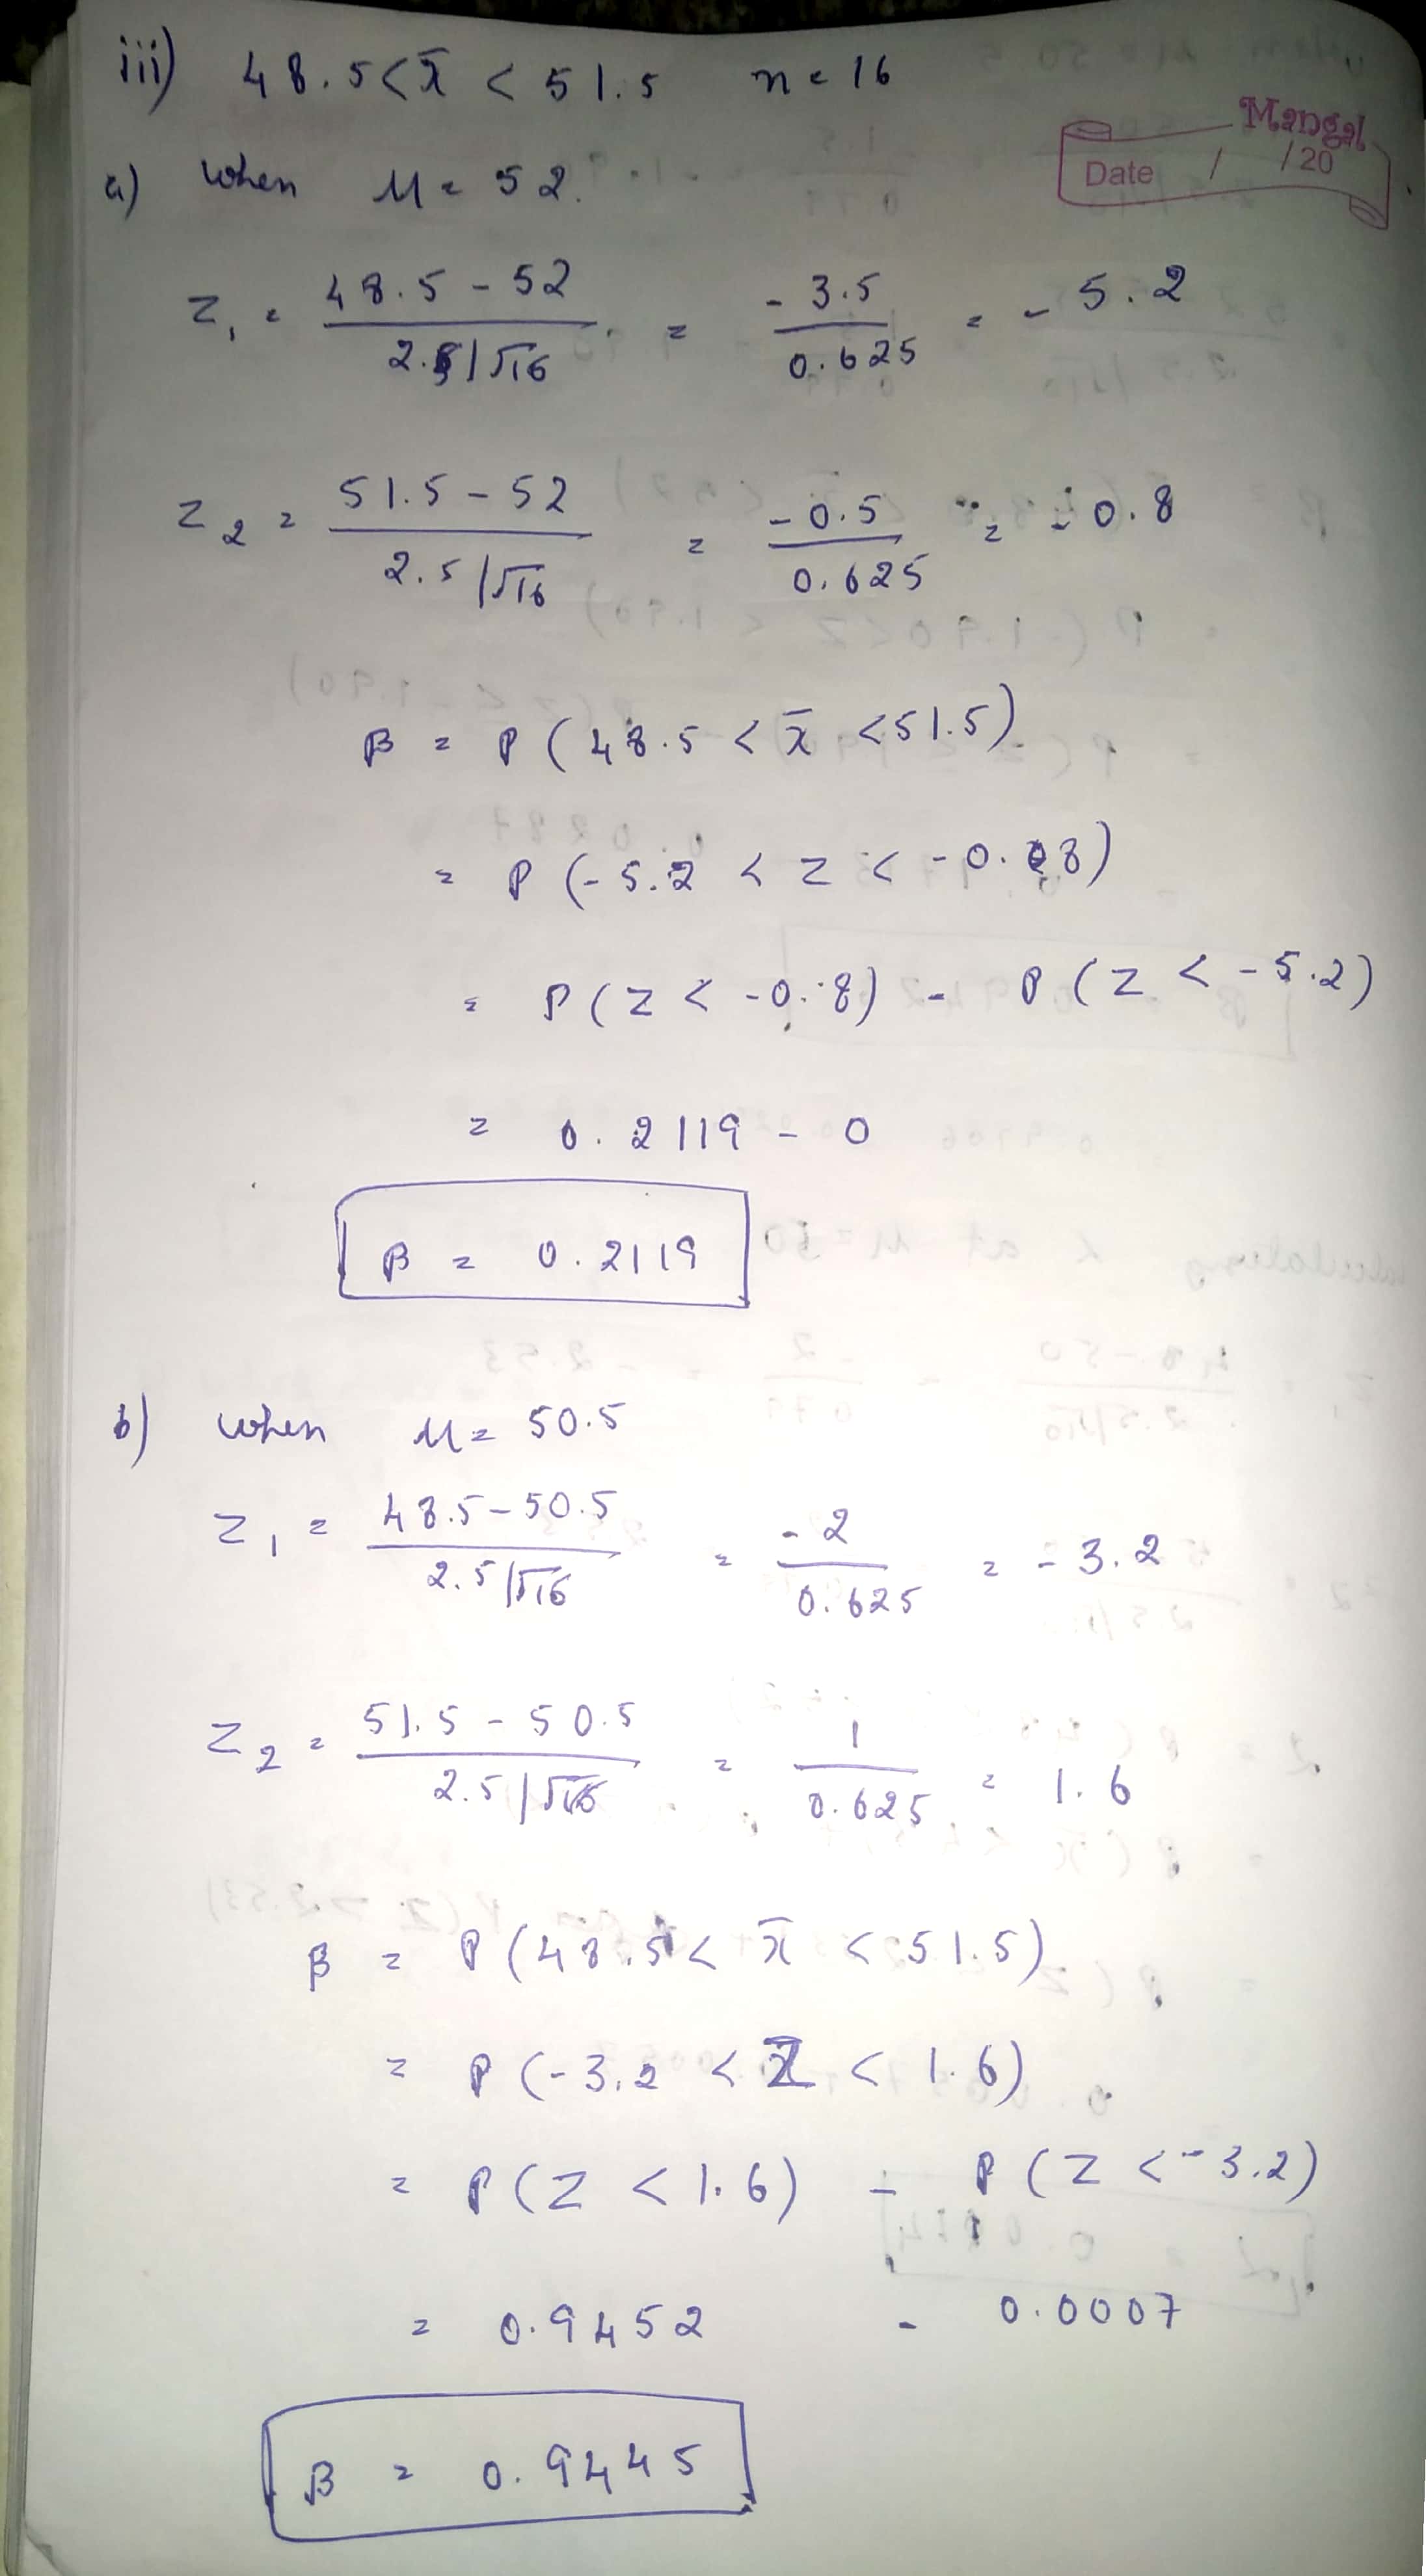 iii) 48.5 < x̄ < 51.5 n = 16
Mangal
Date / /20
a) when μ = 52.
z₁ = (48.5 - 52)/(2.5/√16) = -3.5/0.625 = -5.2
z₂ = (51.5 - 52)/(2.5/√16) = -0.5/0.625 = -0.8
β = P(48.5 < x̄ < 51.5)
= P(-5.2 < z < -0.8)
= P(z < -0.8) - P(z < -5.2)
= 0.2119 - 0
β = 0.2119
b) when μ = 50.5
z₁ = (48.5 - 50.5)/(2.5/√16) = -2/0.625 = -3.2
z₂ = (51.5 - 50.5)/(2.5/√16) = 1/0.625 = 1.6
β = P(48.5 < x̄ < 51.5)
= P(-3.2 < Z < 1.6)
= P(Z < 1.6) - P(Z < -3.2)
= 0.9452 - 0.0007
β = 0.9445